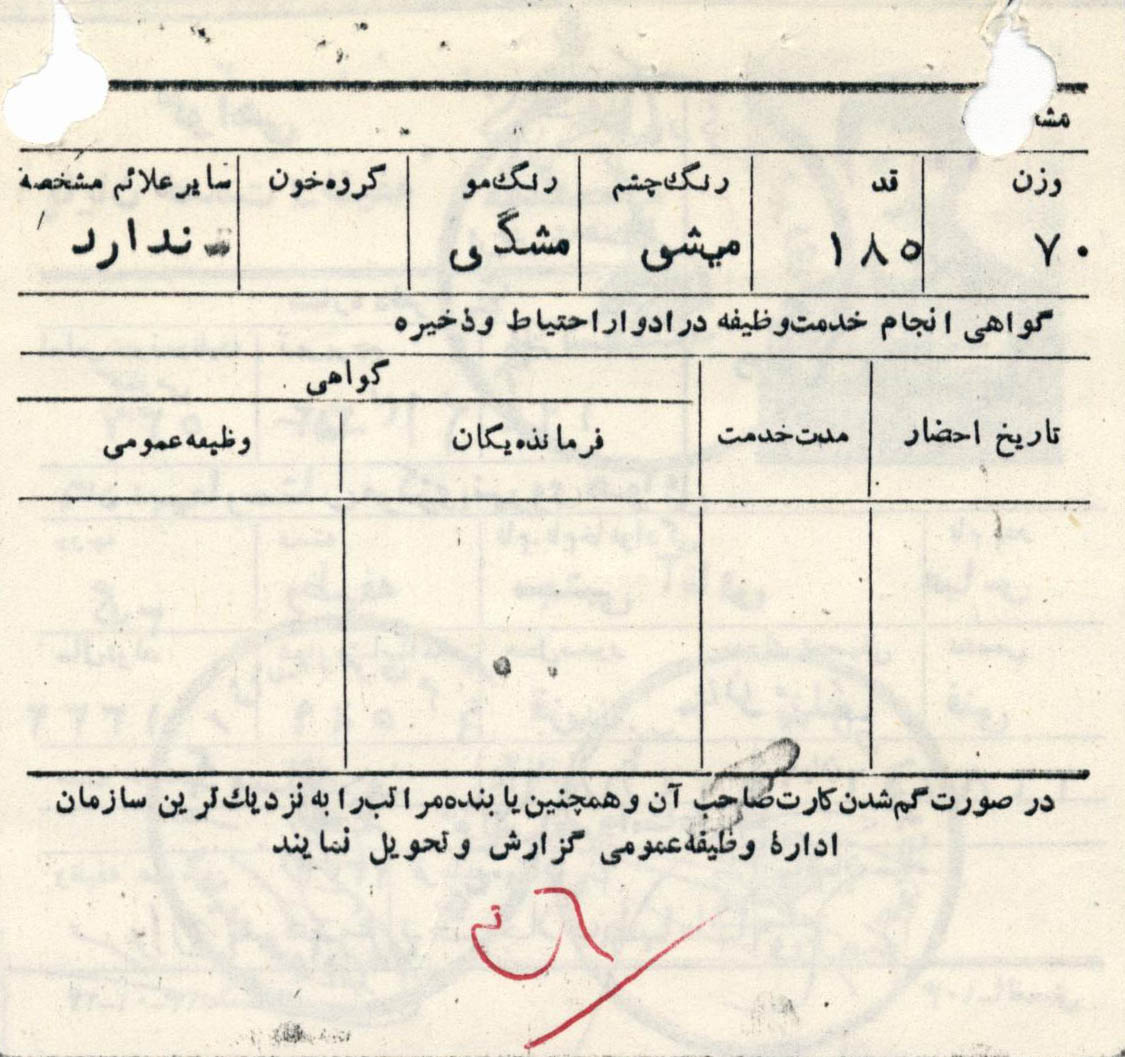 وزن قد رنگ‌چشم رنگ‌مو گروه‌خون سایر علائم مشخصه
۷۰ ۱۸۵ میشی مشگی ندارد
گواهی انجام خدمت وظیفه در ادوار احتیاط و ذخیره
گواهی
تاریخ احضار مدت‌خدمت فرمانده‌یگان وظیفه‌عمومی
در صورت گم شدن کارت صاحب آن و همچنین یابنده مراتب را به نزدیک ترین سازمان
ادارهٔ وظیفه‌عمومی گزارش و تحویل نمایند